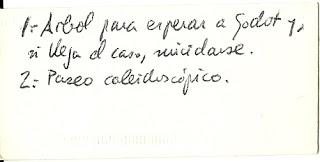 1.- Árbol para esperar a Godot y,
si llega el caso, suicidarse.
2.- Paseo caleidoscópico.